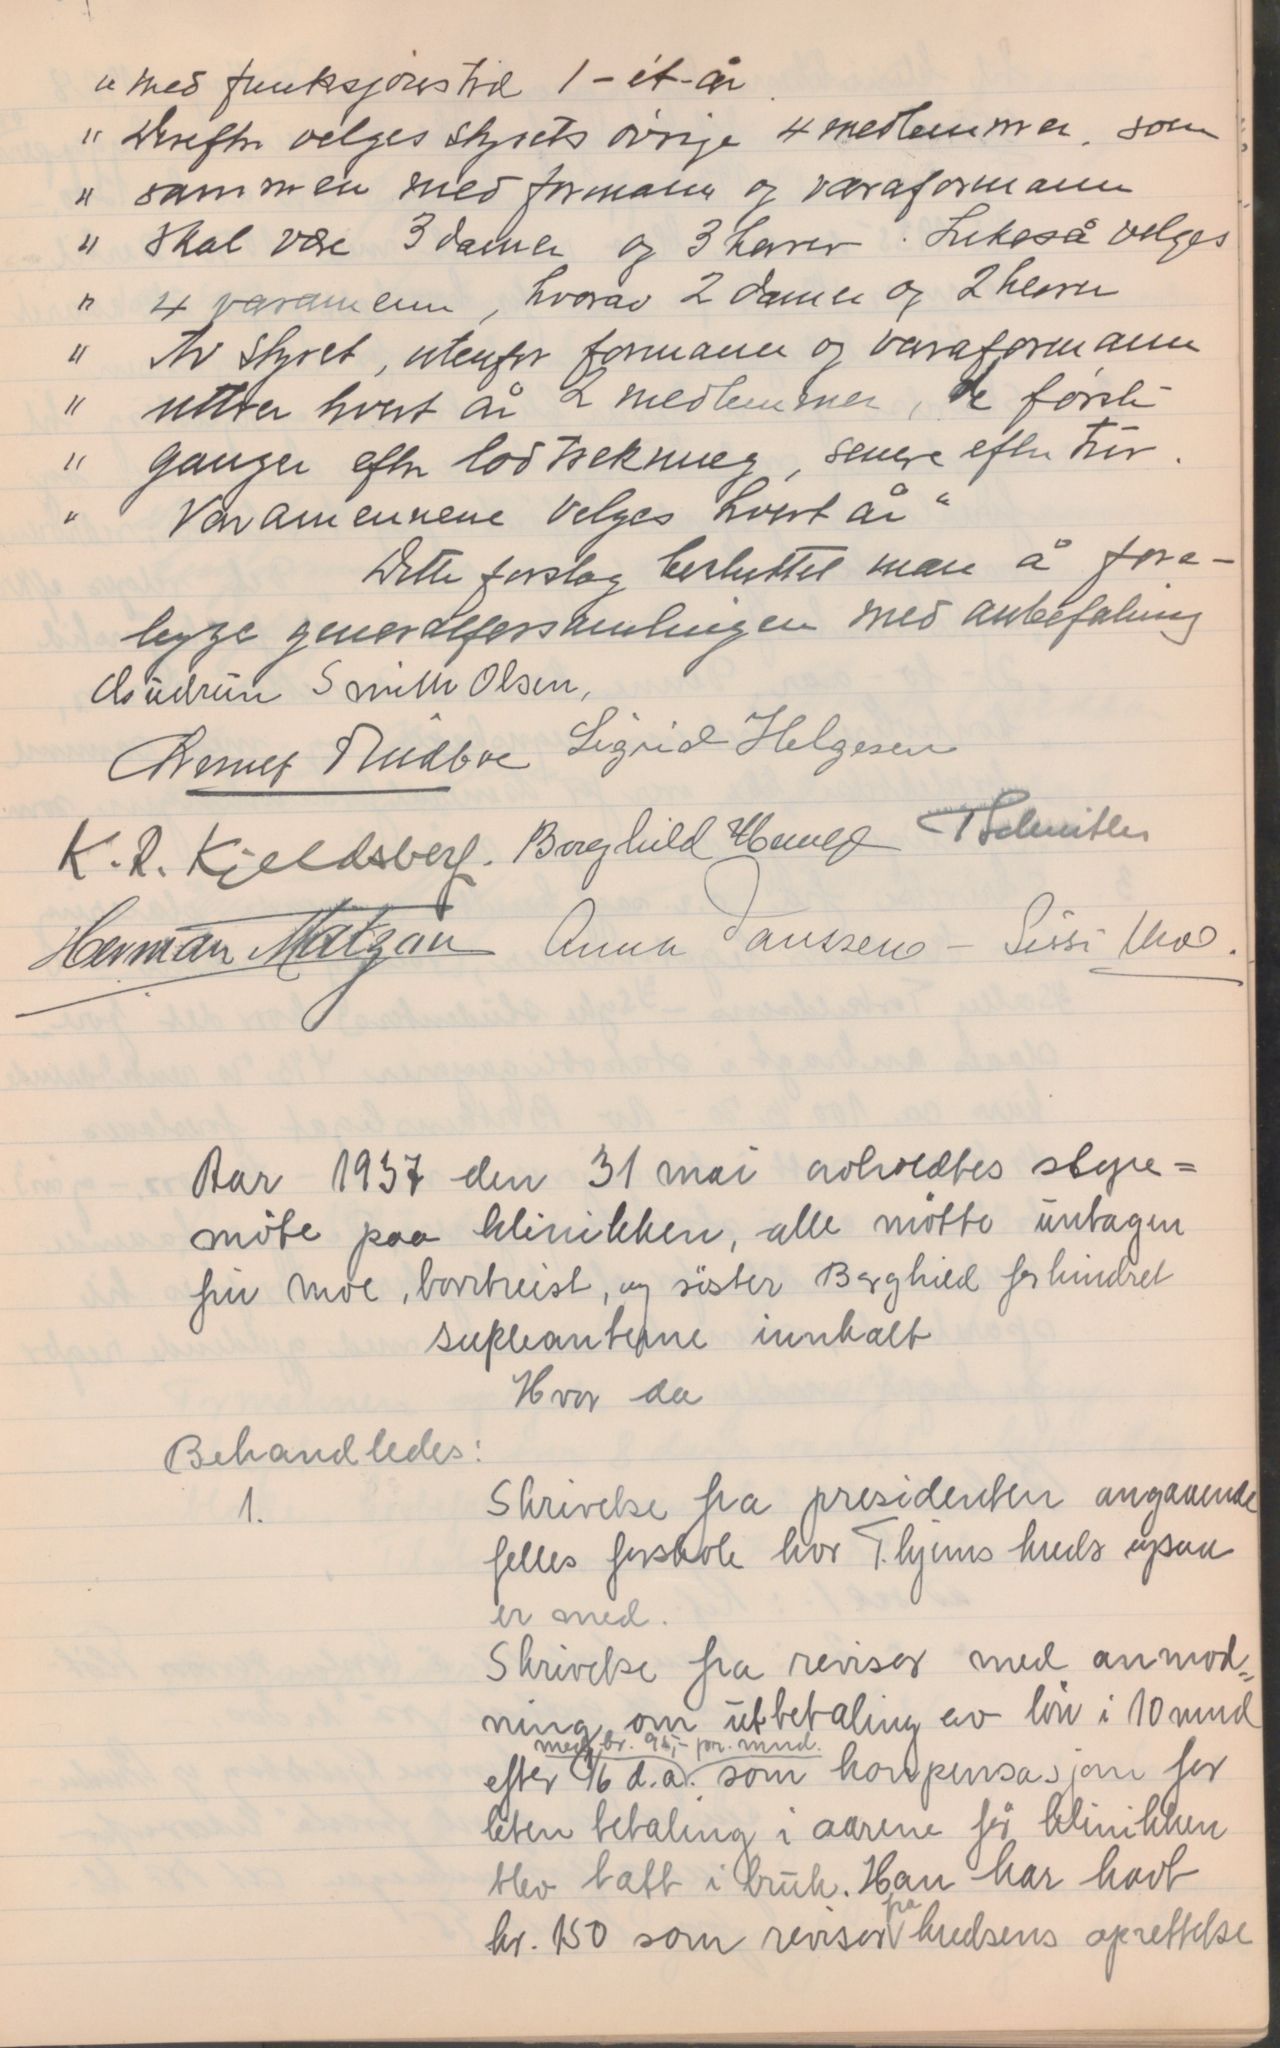 " med funksjonstid 1 - ét - år.
" Derefter velges styrets øvrige 4 medlemmer, som
" sammen med formann og varaformann
" skal være 3 damer og 3 herrer. Likeså velges
" 4 varamenn, hvorav 2 damer og 2 herrer
" Av styret, utenfor formann og varaformann
" uttrer hvert år 2 medlemmer, de første
" ganger efter lodtrekning, senere efter tur.
" Varamennene velges hvert år "
Dette forslag besluttet man å fore-
legge generalforsamlingen med anbefaling
Gudrun Smith Olsen,
Sigrid Helgesen
K. R. Kjeldsberg. Borghild
Herman Matzau Anna Janssen - Sissi Moe.
Aar 1937 den 31 mai avholdtes styre=
möte paa klinikken, alle mötte untagen
fru Moe, bortreist, og söster Borghild forhindret
supleanterne innkalt
Hvor da
Behandledes:
1. Skrivelse fra presidenten angaaende
felles forskole hvor T.hjems kreds ogsaa
er med.
Skrivelse fra revisor med anmod=
ning om utbetaling av lön i 10 mnd
med kr. 95,- pr. mnd.
efter 1/6 d.a. som kompensasjon for
liten betaling i aarene för klinikken
blev tatt i bruk. Han har havt
fra
kr. 150 som revisor kredsens oprettelse